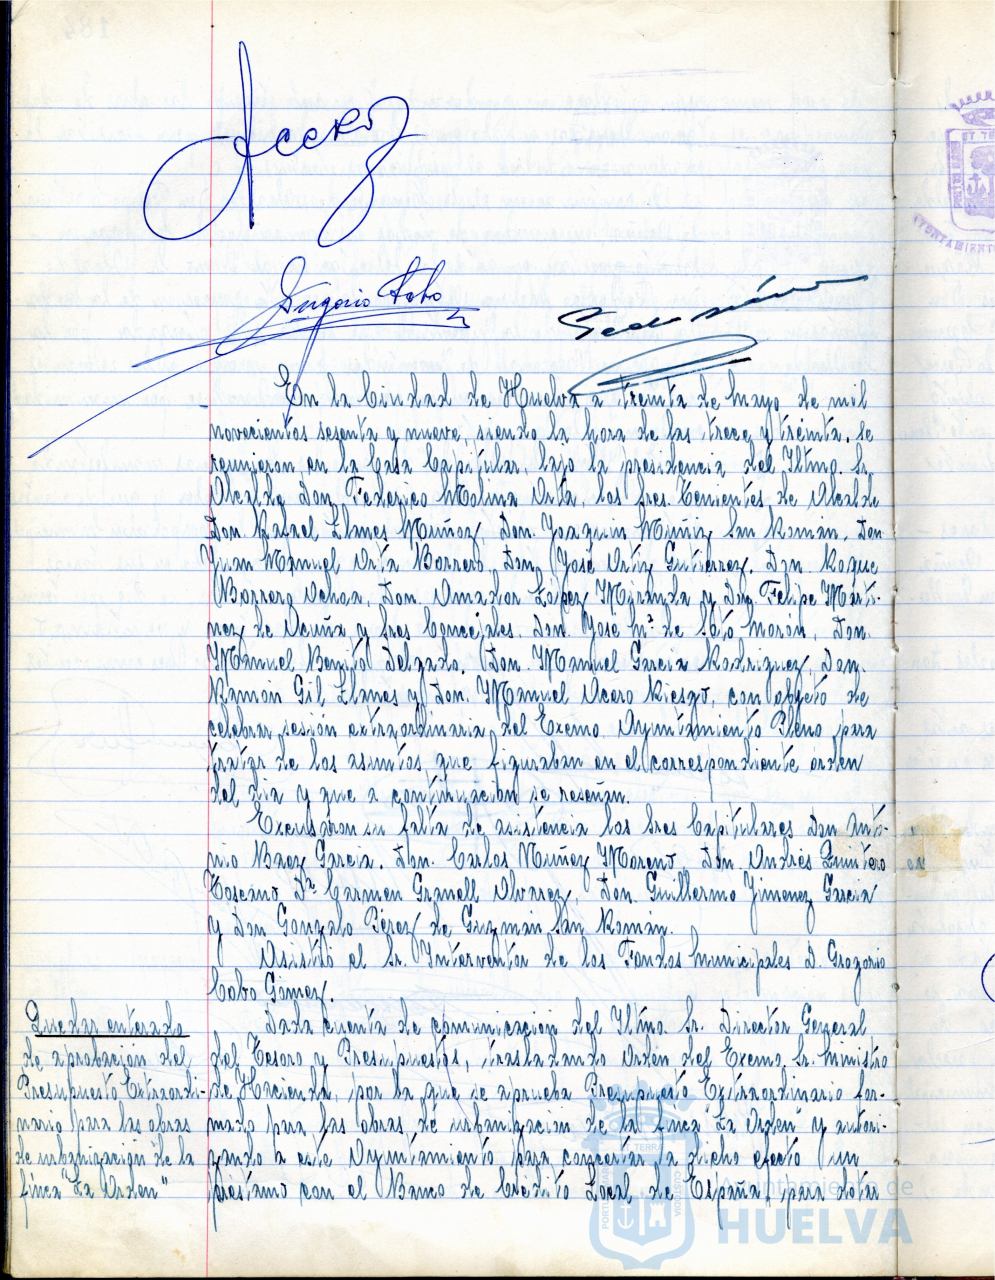 Acero
Gregorio Cobo
En la Ciudad de Huelva a treinta de mayo de mil
novecientos sesenta y nueve, siendo la hora de las trece y treinta, se
reunieron en la Casa Capitular, bajo la presidencia del Iltmo. Sr.
Alcalde Don Federico Molina Orta, los Sres. Tenientes de Alcalde
Don Rafael Llanes Muñoz, Don Joaquin Muñiz San Román, Don
Juan Manuel Orta Borrero, Don José Ortiz Gutierrez, Don Roque
Borrero Ochoa, Don Amador López Miranda y Don Felipe Marti-
nez de Acuña y Sres Concejales, Don José Mª de Soto Morón, Don
Manuel Benito Delgado, Don Manuel Garcia Rodriguez, Don
Ramón Gil Llanes y Don Manuel Acero Riesgo, con objeto de
celebrar sesión extraordinaria del Excmo. Ayuntamiento Pleno para
tratar de los asuntos que figuraban en el correspondiente orden
del dia y que a continuación se reseñan.
Excusaron su falta de asistencia los Sres Capitulares Don Anto-
nio Baez Garcia, Don Carlos Muñoz Moreno, Don Andrés Quintero
Toscano Dª Carmen Granell Alvarez, Don Guillermo Jimenez Garcia
y Don Gonzalo Pérez de Guzmán San Román.
Asistió el Sr. Interventor de los Fondos Municipales D. Gregorio
Cobo Gómez.
Quedar enterado
de aprobación del
Presupuesto Extraordi-
nario para las obras
de urbanización de la
finca "La Orden"
Dada cuenta de comunicación del Iltmo. Sr. Director General
del Tesoro y Presupuestos, trasladando Orden del Excmo. Sr. Ministro
de Hacienda, por la que se aprueba Presupuesto Extraordinario for-
mado para las obras de urbanización de la finca "La Orden" y autori-
zando a este Ayuntamiento para concertar a dicho efecto un
préstamo con el Banco de Crédito Local de España, para dotar
Ayuntamiento de
HUELVA